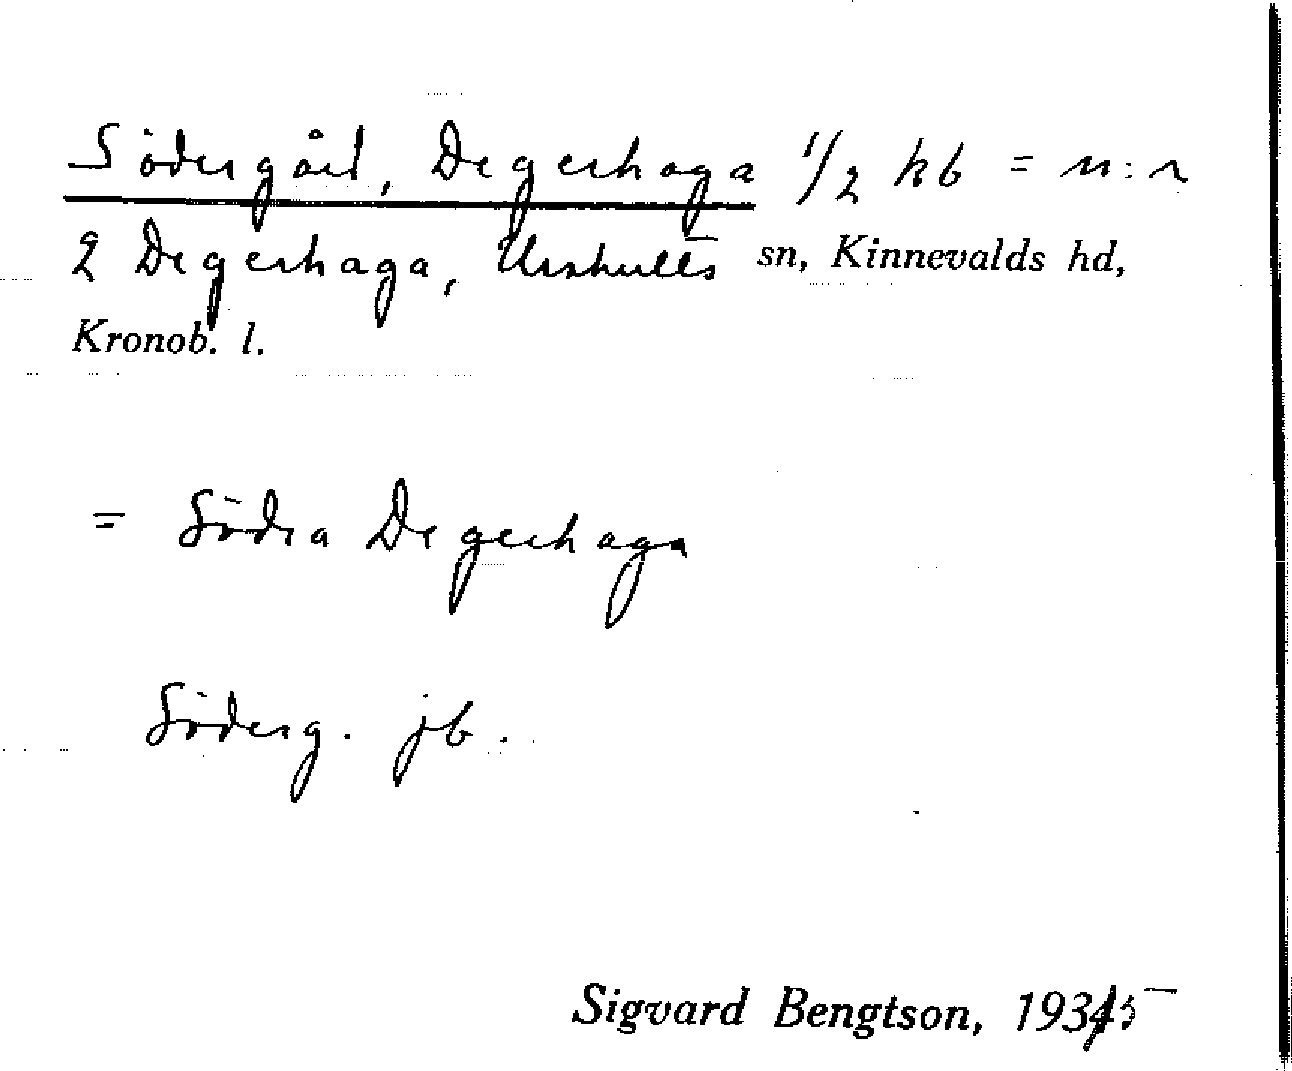 Södergård, Degerhaga 1/2 kb = n:r
2 Degerhaga, Urshults sn, Kinnevalds hd,
Kronob. l.
= Södra Degerhaga
Söderg. jb.
Sigvard Bengtson, 1935